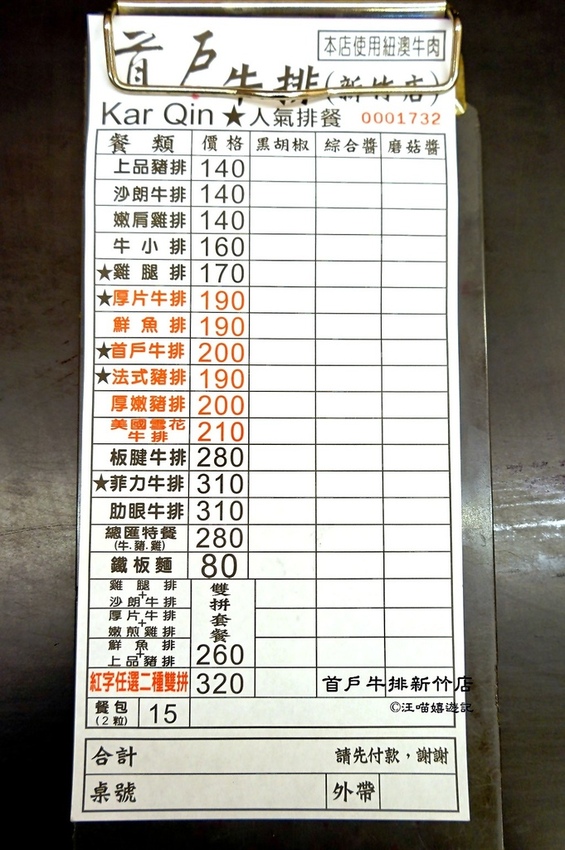 本店使用紐澳牛肉
首戶牛排(新竹店)
Kar Qin ★人氣排餐 0001732
餐類 價格 黑胡椒 綜合醬 磨菇醬
上品豬排 140
沙朗牛排 140
嫩肩雞排 140
牛小排 160
★雞腿排 170
★厚片牛排 190
鮮魚排 190
★首戶牛排 200
★法式豬排 190
厚嫩豬排 200
美國雪花牛排 210
板腱牛排 280
★菲力牛排 310
肋眼牛排 310
總匯特餐 280
(牛.豬.雞)
鐵板麵 80
雞腿排
+
沙朗牛排
厚片牛排
+
嫩煎雞排
鮮魚排
+
上品豬排
雙拼套餐 260
紅字任選二種雙拼 320
首戶牛排新竹店
餐包 15
(2粒)
©汪喵嬉遊記
合計 請先付款，謝謝
桌號 外帶